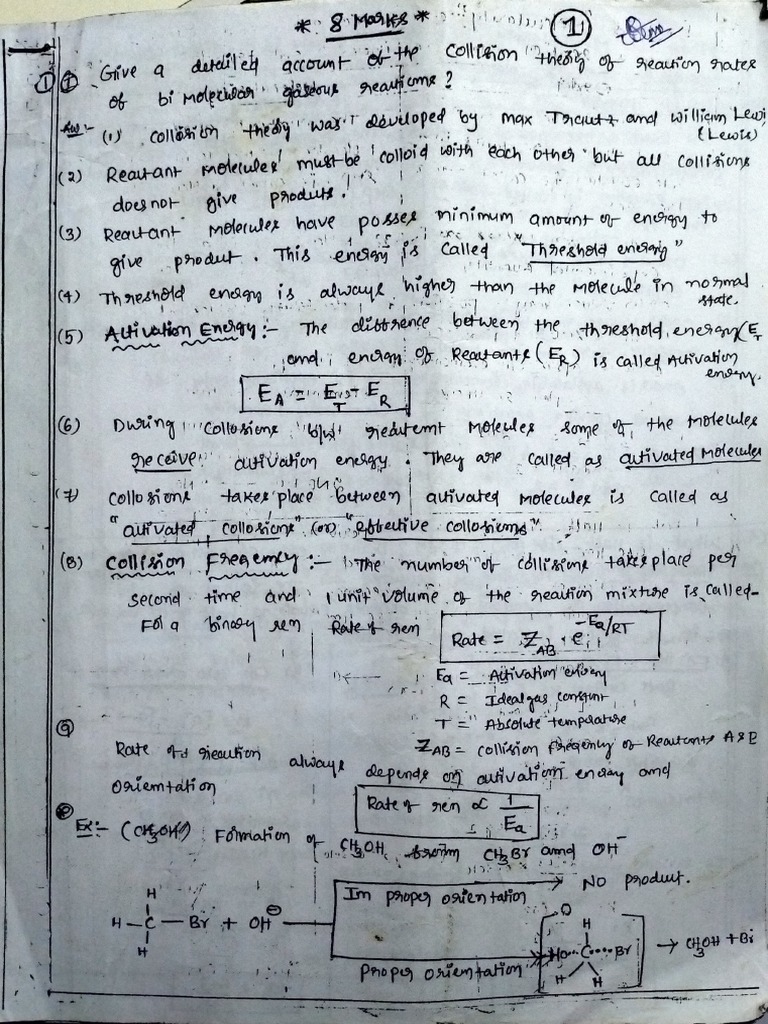 * 8 Marks *
1
① ① Give a detailed account of the collision theory of reaction rates
of bi molecular gaseous reactions ?
Ans:- (1) Collosion theory was developed by max Trautz and william Lewi
(Lewis)
(2) Reactant molecules must be colloid with each other but all collisions
does not give products.
(3) Reactant molecules have posses minimum amount of energy to
give product. This energy is called "Threshold energy"
(4) Threshold energy is always higher than the molecule in normal
state.
(5) Activation Energy:- The diffrence between the threshold energy (E_T
and energy of Reactants (E_R) is called Activation
energy.
E_A = E_T - E_R
(6) During collosions b/w reactant molecules some of the molecules
receive activation energy. They are called as activated molecules
(7) collosions takes place between activated molecules is called as
"activated collosions" (or) "effective collosions".
(8) Collision Freqency:- The number of collisions takes place per
second time and 1 unit volume of the reaction mixture is called-
For a binary rxn Rate of rxn Rate = Z_AB . e^-Ea/RT
Ea = Activation energy
R = Ideal gas constant
T = Absolute temperature
Z_AB = collision freqency of Reactants A & B
⑨
Rate of reaction always depends on activation energy and
orientation
Rate of rxn ∝ 1/Ea
Ex:- (CH3OH) Formation of CH3OH from CH3Br and OH⁻
Im proper orientation → No product.
H
H-C-Br + OH⊖
H
Proper orientation
H
HO....C....Br → CH3OH + Br
H H